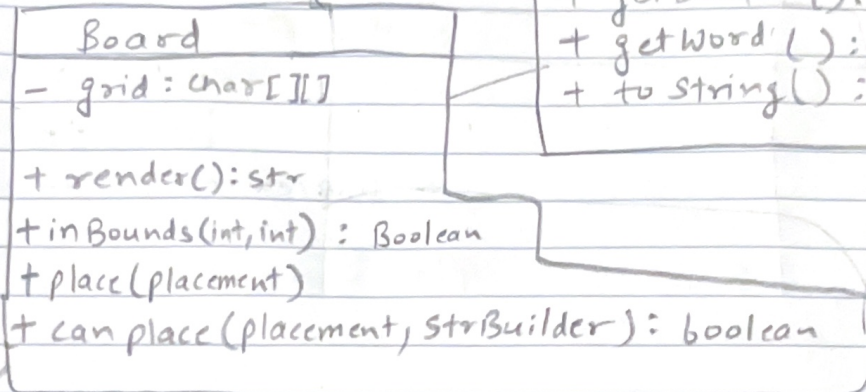 Board
- grid : char[][]
+ render() : str
+ inBounds(int, int) : Boolean
+ place(placement)
+ can place(placement, StrBuilder) : boolean
+ getWord() :
+ to String() :